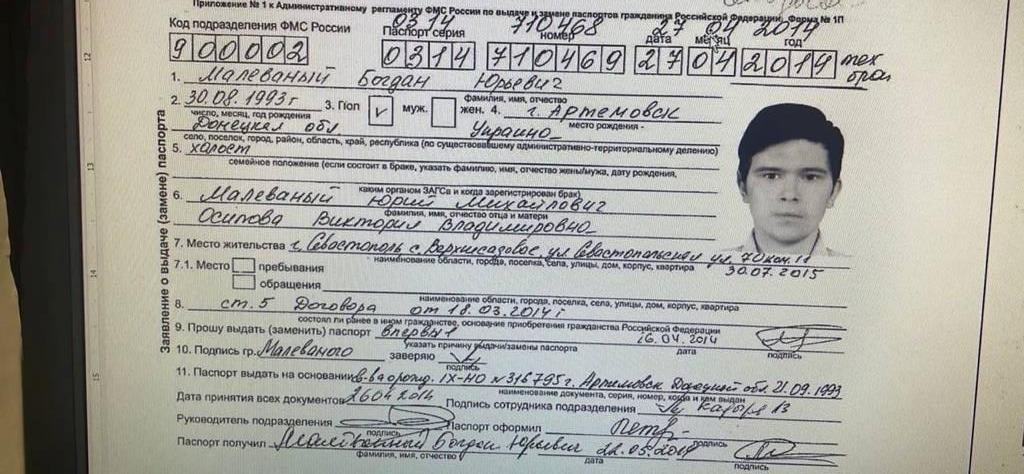 Приложение № 1 к Административному регламенту ФМС России по выдаче и замене паспортов гражданина Российской Федерации, Форма № 1П
0314 710468 27 04 2014
Код подразделения ФМС России Паспорт серия номер дата месяц год
900002 0314 710469 27 04 2014
1. Малеваный Богдан Юрьевич
фамилия, имя, отчество
2. 30.08.1993г 3. Пол муж. жен. 4. г. Артемовск
число, месяц, год рождения место рождения -
Донецкая обл Украина
село, поселок, город, район, область, край, республика (по существовавшему административно-территориальному делению)
5. холост
семейное положение (если состоит в браке, указать фамилию, имя, отчество жены/мужа, дату рождения,
каким органом ЗАГСа и когда зарегистрирован брак)
6. Малеваный Юрий Михайлович
фамилия, имя, отчество отца и матери
Осипова Виктория Владимировна
7. Место жительства г. Севастополь с. Верхнесадовое, ул Севастопольская
наименование области, города, поселка, села, улицы, дом, корпус, квартира
30.07.2015
7.1. Место пребывания
обращения
наименование области, города, поселка, села, улицы, дом, корпус, квартира
8. ст. 5 Договора от 18.03.2014г
состоял ли ранее в ином гражданстве, основание приобретения гражданства Российской Федерации
9. Прошу выдать (заменить) паспорт впервые 26.04.2014
указать причину выдачи/замены паспорта дата подпись
10. Подпись гр. Малеваного заверяю
подпись
11. Паспорт выдать на основании IX-НО №316795 г. Артемовск Донецкой обл. 21.09.1993
наименование документа, серия, номер, когда и кем выдан
Дата принятия всех документов 26042014 Подпись сотрудника подразделения
подпись
Руководитель подразделения Паспорт оформил
подпись
Паспорт получил Малеванный Богдан Юрьевич
фамилия, имя, отчество дата подпись
Заявление о выдаче (замене) паспорта
12
13
14
15